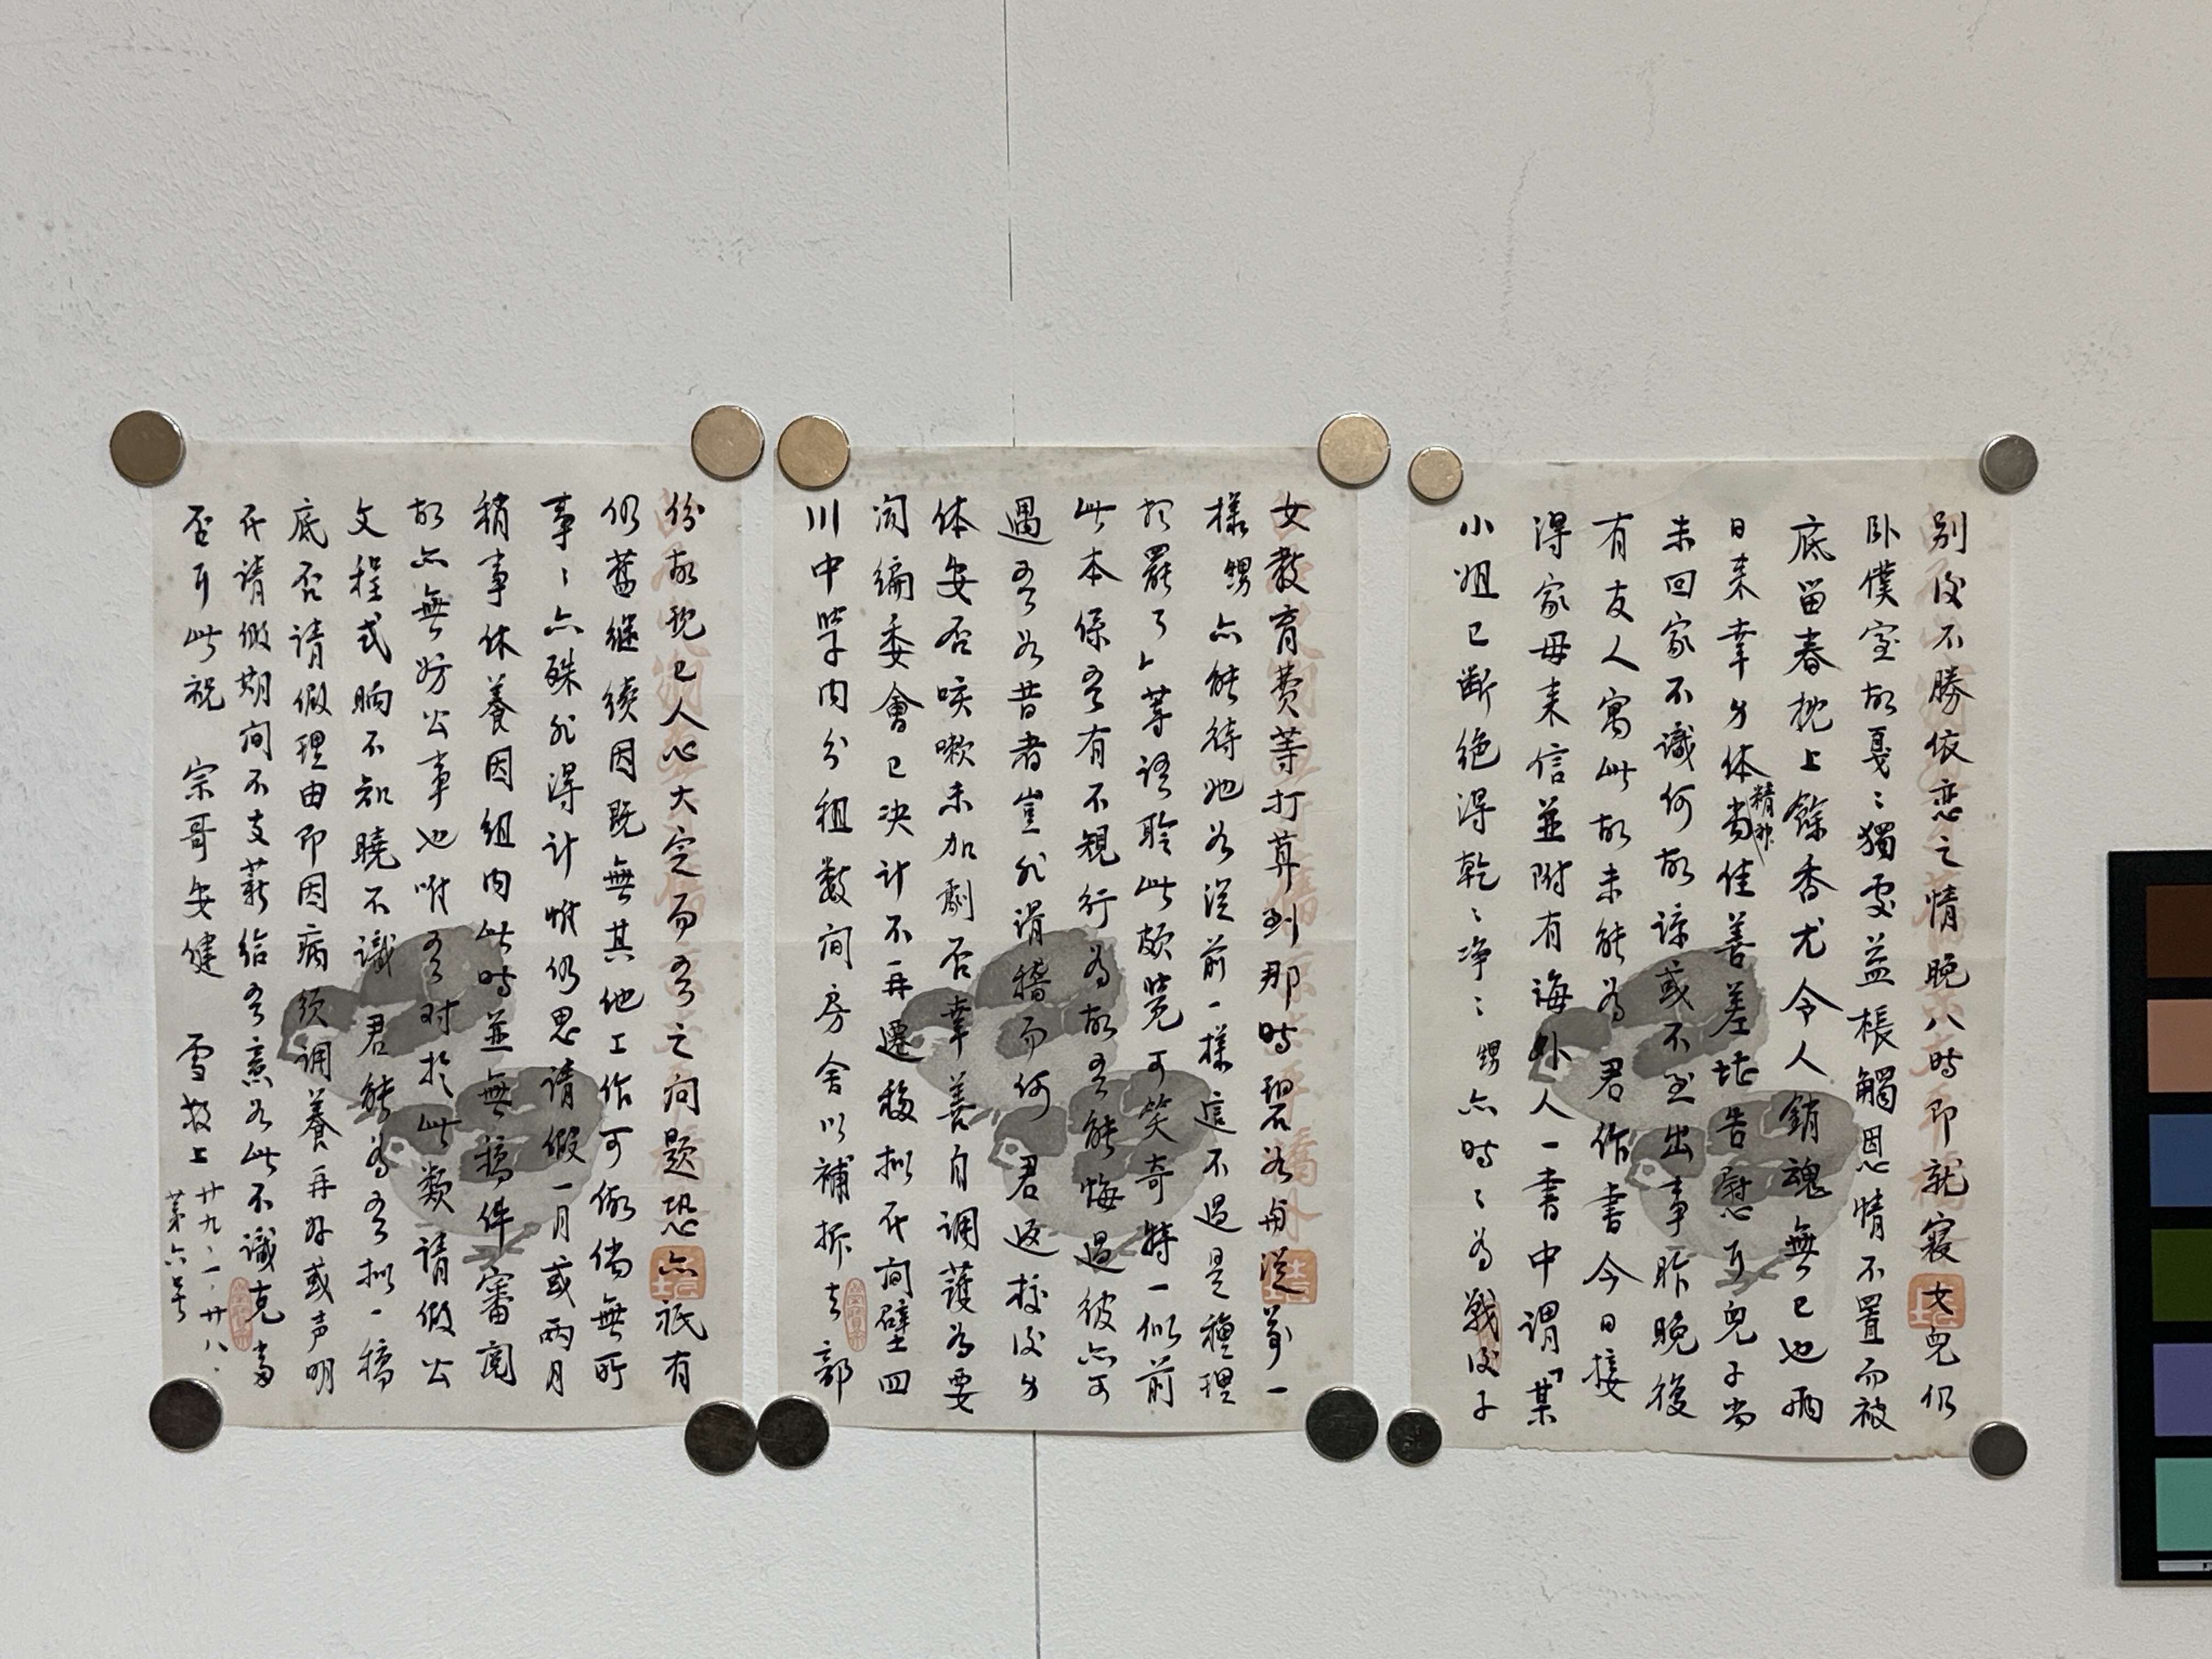 別後不勝依恋之情晚八時即就寢女兒仍
卧僕室故戛〻獨處益棖觸恩情不置而被
底留春枕上餘香尤令人銷魂無已也兩
日来幸身体精神尚佳善差堪告慰耳兒子尚
未回家不識何故諒或不至出事昨晚後
有友人寓此故未能為君作書今日接
得家母来信並附有海外人一書中謂「某
小姐已断绝得乾〻净〻甥亦時〻為戰後子
女教育費等打算到那時碧若再從前一
樣甥亦能待她若從前一樣這不過是種理
想罷了」等語聆此頗覺可笑奇特一似前
此本係吾有不规行為故吾能悔過彼亦可
遇吾若昔者豈非滑稽而何君返校後身
体安否咳嗽未加劇否幸善自調護為要
闻編委會已决计不再遷移拟在间壁四
川中學内分租数间房舍以補拆去部
份故现已人心大定而吾之问题恐亦祇有
仍舊继续因既無其他工作可做倘無所
事〻亦殊非得计惟仍思請假一月或兩月
稍事休養因组内此時並無稿件審阅
故亦無妨公事也唯吾对於此類請假公
文程式晌不知曉不識君能為吾拟一稿
底否請假理由即因病须调養再好或声明
在请假期间不支薪给吾意若此不識克當
否耳此祝 宗哥安健 雪敬上 廿九、一、廿八、
第六号